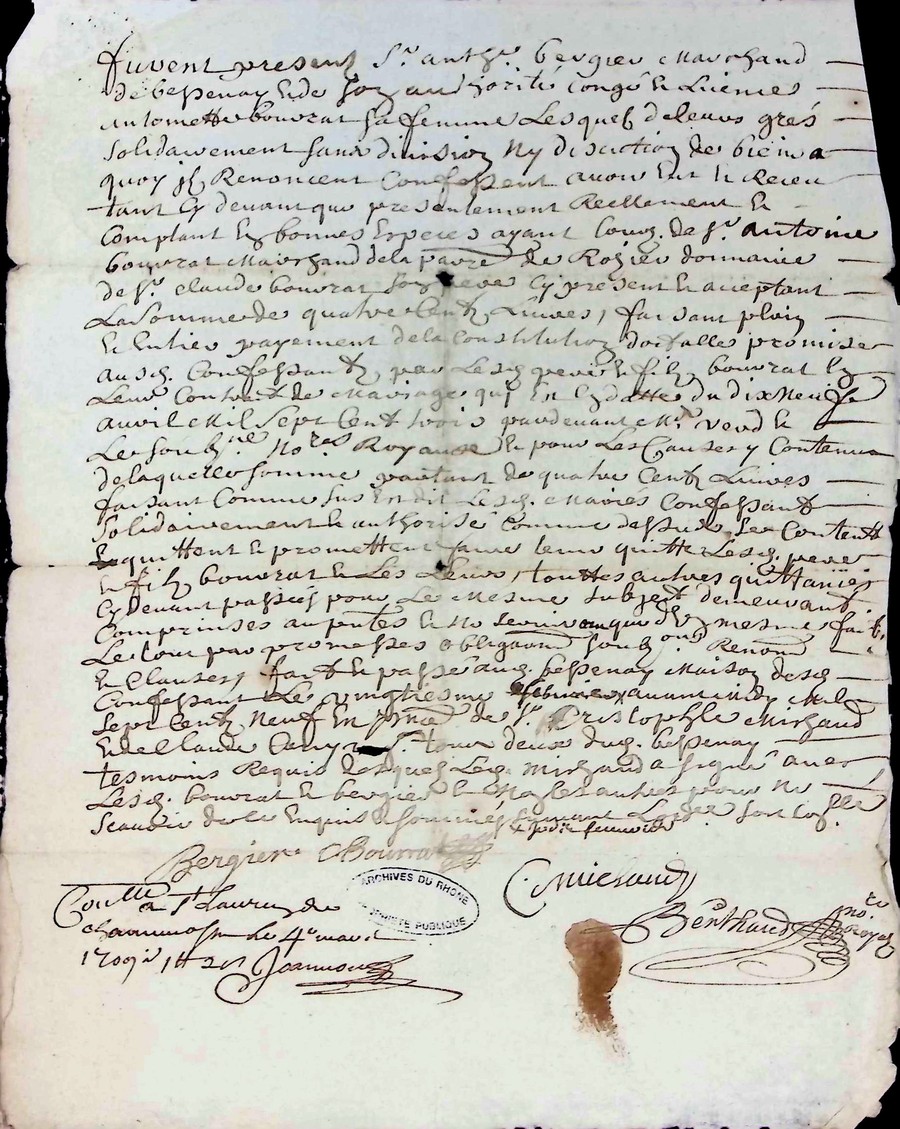 furent presentz Sr. anthe. bergier Marchand
de bessenay Et de son authorité congé Et Licence
Antomette bourrat sa femme Lesquels de leurs grés
Solidairement sans division Ny discution de biens a
quoy ilz Renoncent Confessent avoir Eut Et Receu
tant Cy devant que presentement Reellement Et
Comptant En bonnes Especes ayant Cours de Sr. Antoine
bourrat Marchand de la parre. de Rosier domaine
de Sr. Claude bourrat son pere Cy present Et acceptant
La Somme de quatre Centz Livres, faisant plein
Et Entier payement de la Constitution dotalle promise
ausd. Confessantz, par Lesd. pere Et filz bourrat En
Leur Contract de Mariage qui En En datte du dix Neufe.
avril Mil Sept Cent trois pardevant Me. verd Et
Le Soubzne. Nores. Royaux Et pour Les Causes y Contenues
de laquelle Somme partant de quatre Centz Livres
faisant Comme Sus Est dit Lesd. Maries Confessantz
Solidairement Et authorisé Comme dessus se Contentt
Enquittent Et promettent faire tenir quitte Lesd. pere
Et filz bourrat Et Les Leurs, touttes autres quittances
Cy devant passées pour Le Mesme Subject demeurant
Comprinses au presentes Et ne servir que d'un mesme fait
Le tout par promesses obligaons Soubzons. Renonon.
Et Clauses, fait Et passé aud. bessenay Maison desd.
Confessant Le vingtiesme febvrier avant midy Mil
Sept Centz Neuf En pnce. de Sr. Cristophle Michaud
Et de Claude tous deux dud. bessenay
tesmoins Requis Lesquels Led. Michaud a Signé avec
Lesd. bourrat Et bergier Et Non Les autres pour Ne
Scavoir de ce Enquis Et Sommés Suivant
Bergier Bourrat
C. Michaud
Berthaud nore. Royal
Conlle. a St Laurens de
chamousset Le 4e mars
1709
ARCHIVES DU RHONE
PROPRIETE PUBLIQUE